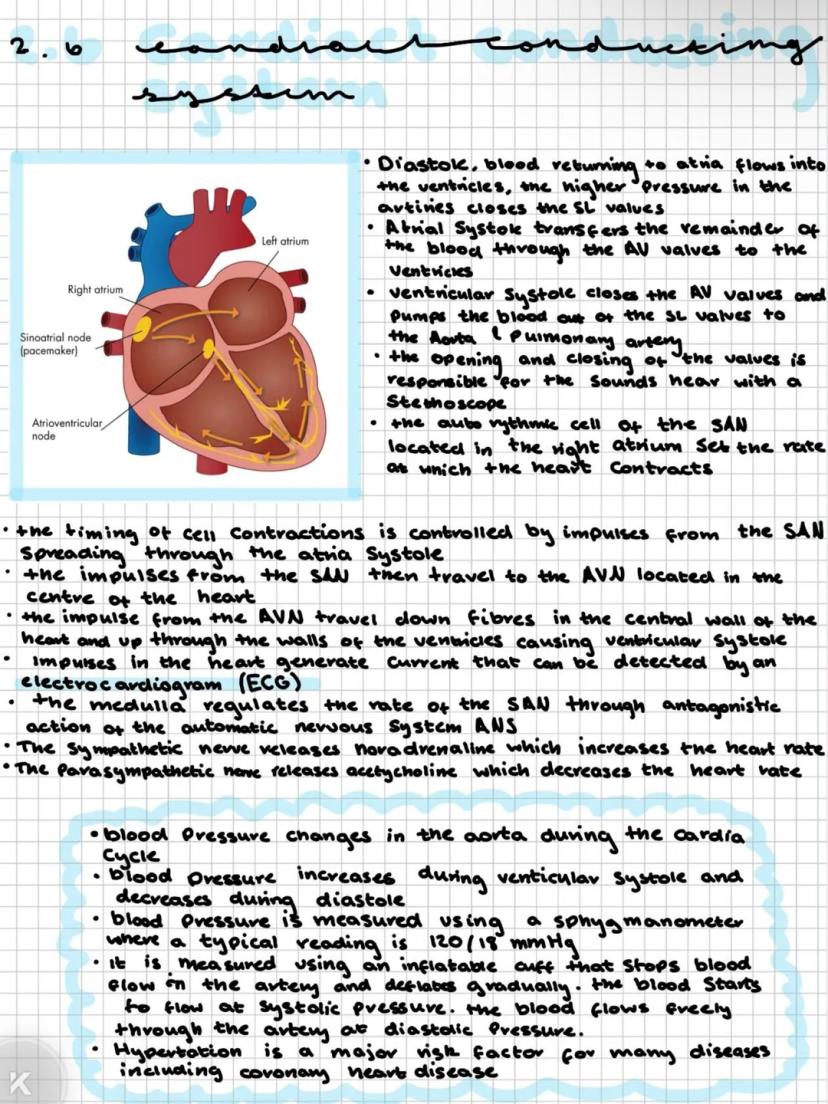 2.6 cardiact conducting
system
• Diastole, blood returning to atria flows into
the ventricles, the higher pressure in the
artiries closes the SL values
• Atrial Systole transfers the remainder of
the blood through the AV valves to the
ventricles
• ventricular Systole closes the AV valves and
Pumps the blood out of the SL valves to
the Aorta & Pulmonary artery
• the opening and closing of the valves is
responsible for the sounds hear with a
Stethoscope
• the auto rythmic cell of the SAN
located in the right atrium Set the rate
at which the heart Contracts
Left atrium
Right atrium
Sinoatrial node
(pacemaker)
Atrioventricular
node
• the timing of cell contractions is controlled by impulses from the SAN
Spreading through the atria Systole
• the impulses from the SAN then travel to the AVN located in the
centre of the heart
• the impulse from the AVN travel down fibres in the central wall of the
heart and up through the walls of the ventricles causing ventricular Systole
• Impulses in the heart generate current that can be detected by an
electrocardiogram (ECG)
• the medulla regulates the rate of the SAN through antagonistic
action of the automatic nervous System ANS
• The Sympathetic nerve releases noradrenaline which increases the heart rate
• The Parasympathetic nerve releases acetycholine which decreases the heart rate
• blood Pressure changes in the aorta during the cardia
Cycle
• blood pressure increases during venticular Systole and
decreases during diastole
• blood Pressure is measured using a sphygmanometer
where a typical reading is 120/18 mmHg
• It is measured using an inflatable cuff that Stops blood
flow in the artery and deflates gradually. the blood Starts
to flow at systolic pressure. the blood flows freely
through the artery at diastolic Pressure.
• Hypertation is a major risk factor for many diseases
including coronary heart disease
K